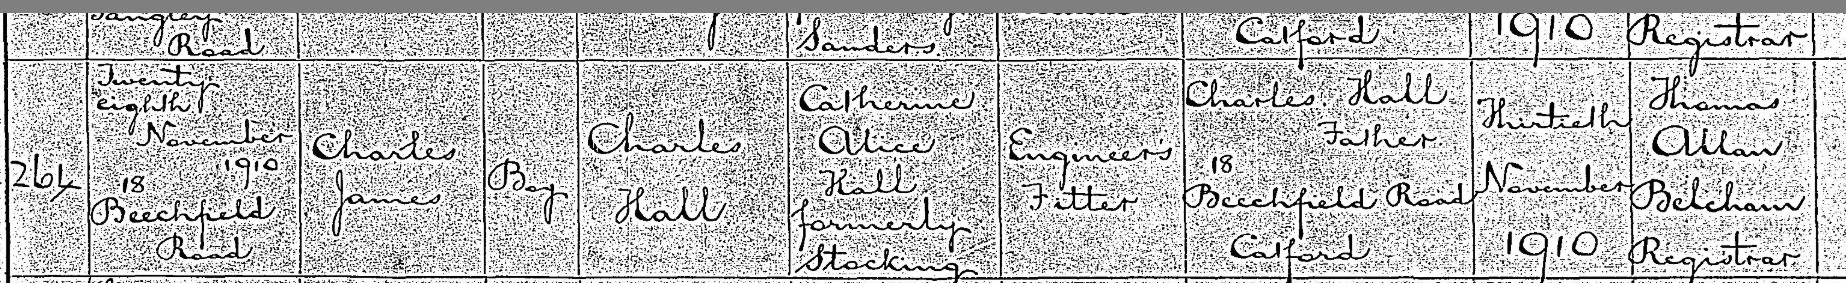 Tangley
Road
Sanders
Catford
1910
Registrar
264
Twenty
eighth
November
1910
18
Beechfield
Road
Charles
James
Boy
Charles
Hall
Catherine
Alice
Hall
formerly
Stocking
Engineer's
Fitter
Charles. Hall
Father.
18
Beechfield Road
Catford
Thirtieth
November
1910
Thomas
Allan
Belcham
Registrar